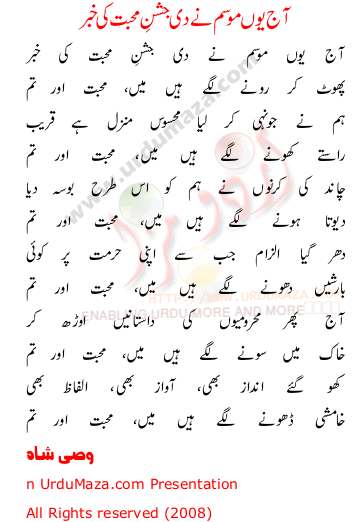 آج یوں موسم نے دی جشنِ محبت کی خبر
آج یوں موسم نے دی جشنِ محبت کی خبر
پھوٹ کر رونے لگے ہیں میں، محبت اور تم
ہم نے جونہی کر لیا محسوس منزل ہے قریب
راستے کھونے لگے ہیں میں، محبت اور تم
چاند کی کرنوں نے ہم کو اس طرح بوسہ دیا
دیوتا ہونے لگے ہیں میں، محبت اور تم
دھر گیا الزام جب سے اپنی حرمت پر کوئی
بارشیں دھونے لگے ہیں میں، محبت اور تم
آج پھر محرومیوں کی داستانیں اوڑھ کر
خاک میں سونے لگے ہیں میں، محبت اور تم
کھو گئے انداز بھی، آواز بھی، الفاظ بھی
خامشی ڈھونے لگے ہیں میں، محبت اور تم
وصی شاہ
n UrduMaza.com Presentation
All Rights reserved (2008)
www.urdumaza.com
اردو مزا
HTTP://WWW.URDUMAZA.COM
ENABLING URDU MORE AND MORE